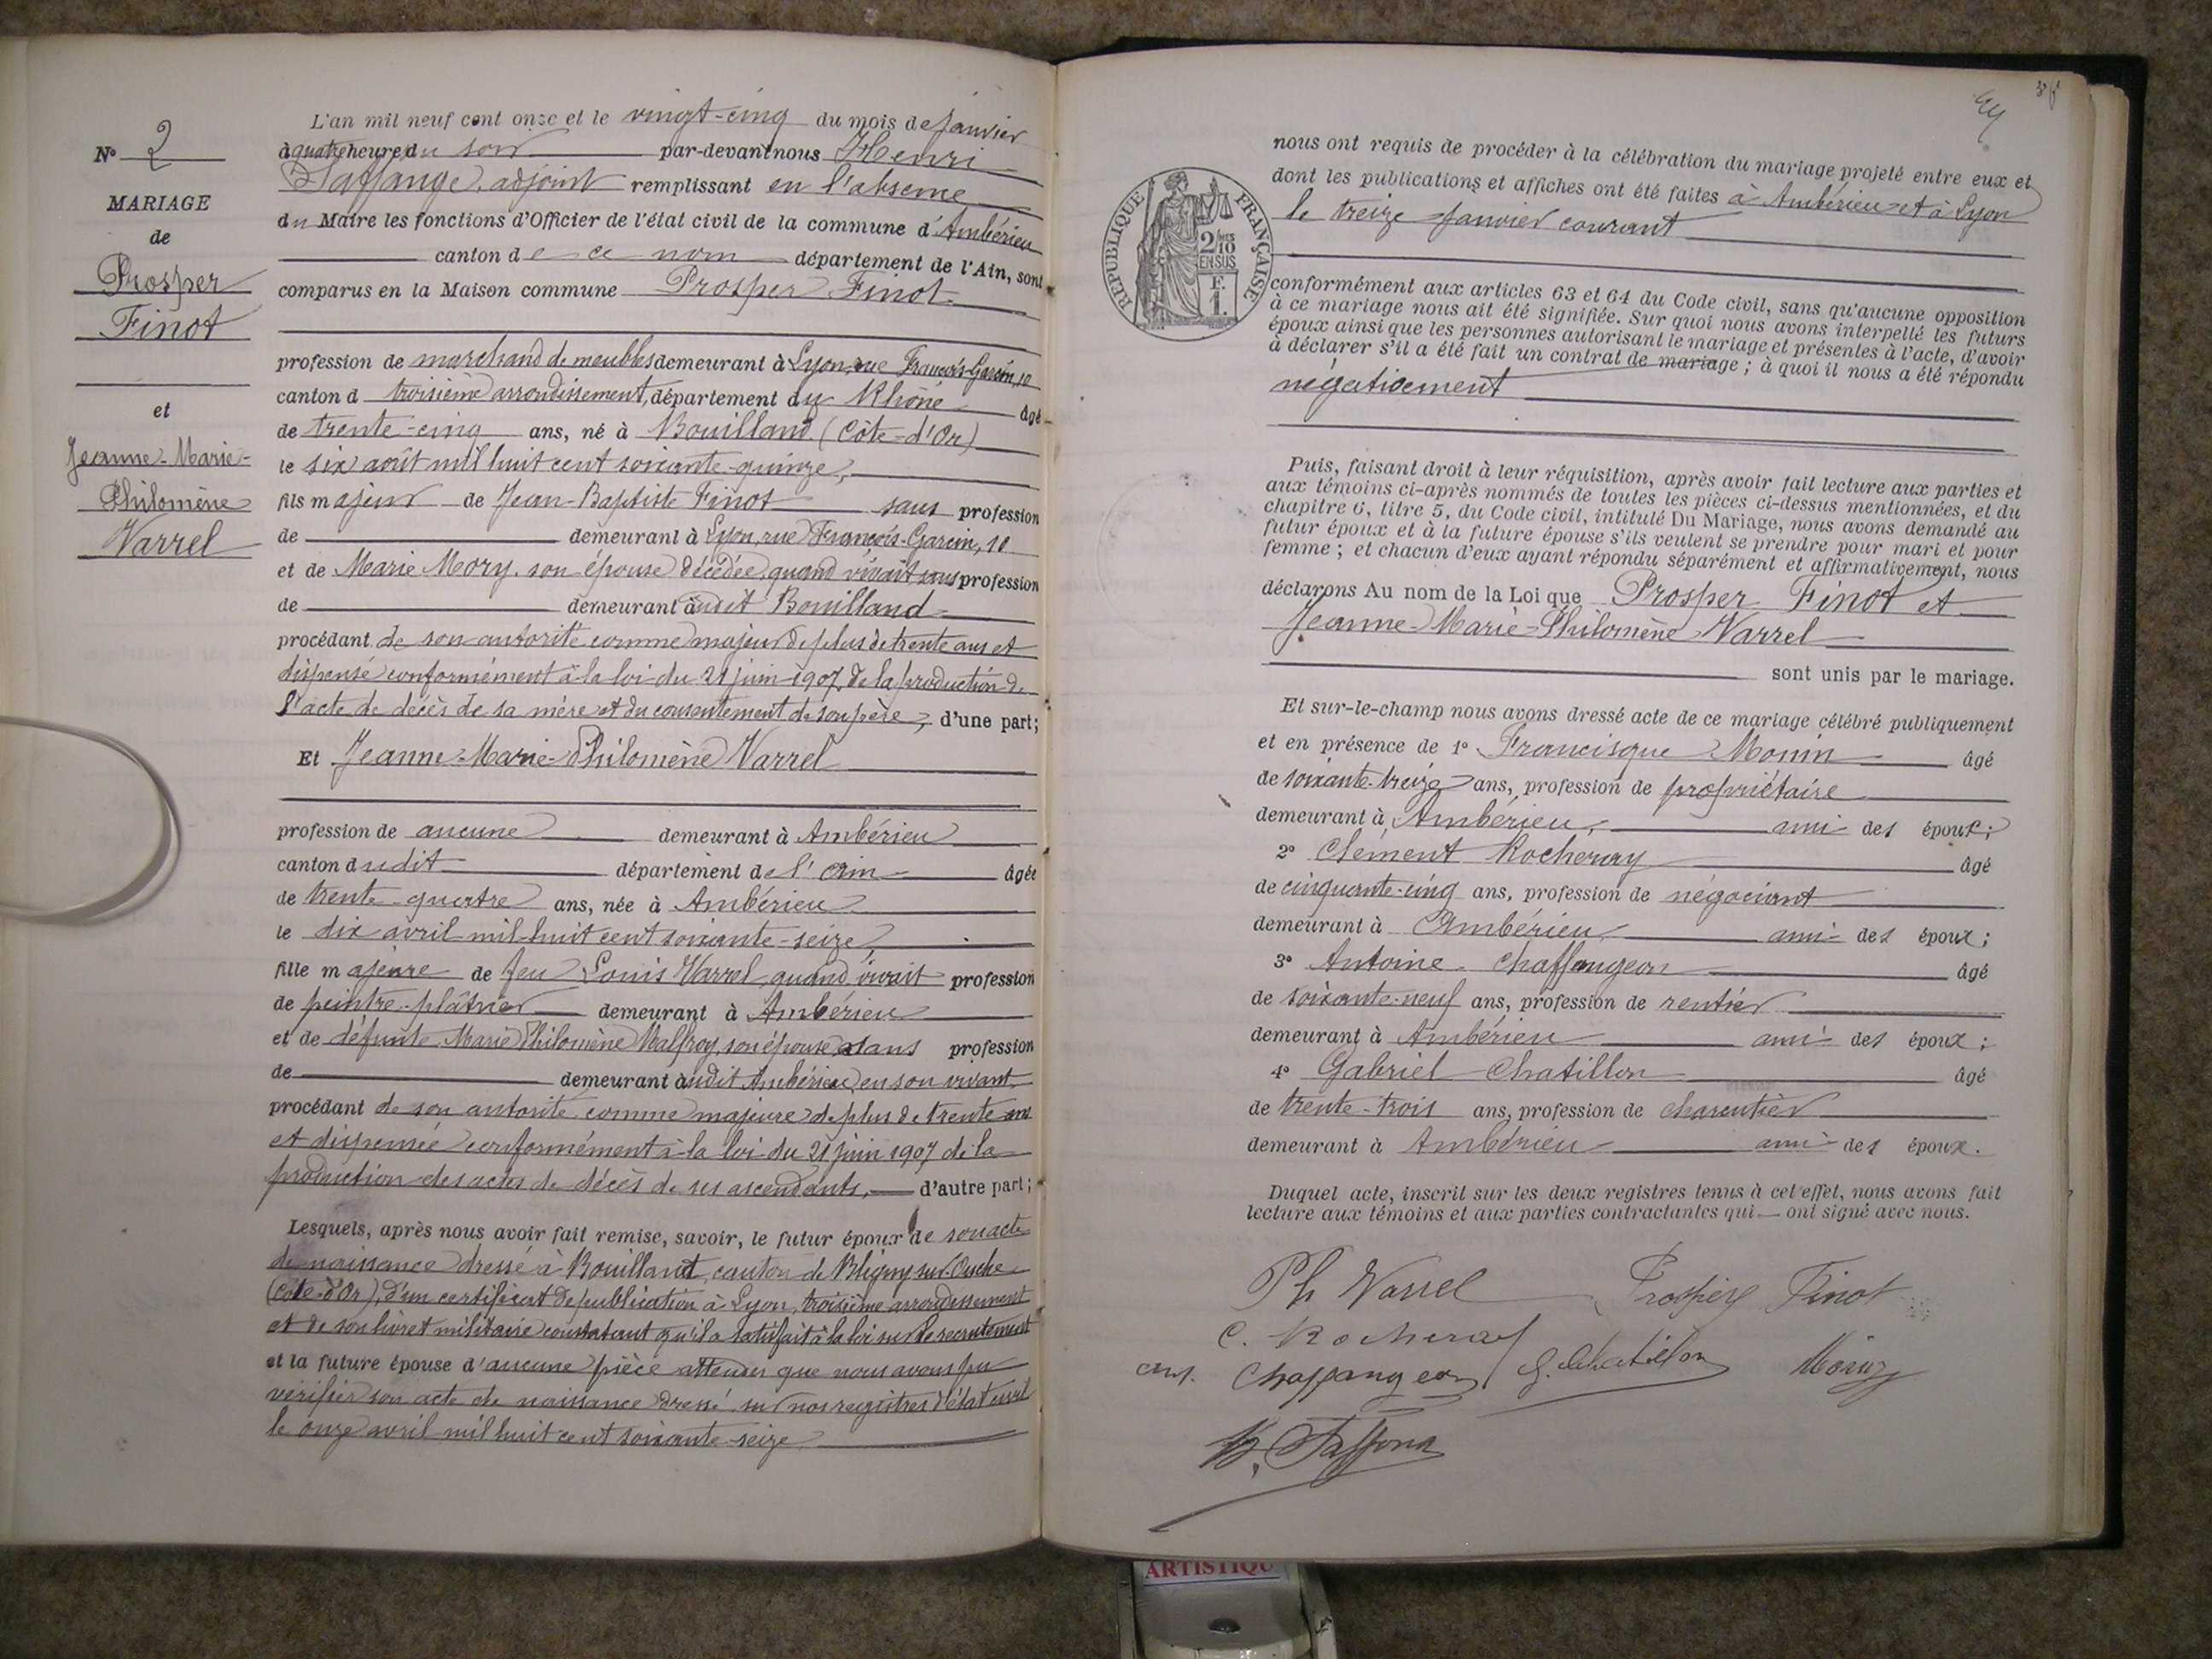 N° 2
MARIAGE
de
Prosper
Finot
et
Jeanne-Marie-
Philomène
Varrel
L'an mil neuf cent onze et le vingt-cinq du mois de janvier
à quatre heure du soir par-devant nous Henri
adjoint remplissant en l'absence
du Maire les fonctions d'Officier de l'état civil de la commune d'Ambérieu
canton de ce nom département de l'Ain, sont
comparus en la Maison commune Prosper Finot
profession de marchand de meubles demeurant à Lyon, rue François-Garcin, 10
canton d troisième arrondissement, département du Rhône âgé
de trente-cinq ans, né à Bouilland (Côte-d'Or)
le six août mil huit cent soixante-quinze,
fils majeur de Jean-Baptiste Finot sans profession
de demeurant à Lyon, rue François-Garcin, 10
et de Marie Mory, son épouse décédée, quand vivait sans profession
de demeurant audit Bouilland
procédant de son autorité comme majeur de plus de trente ans et
dispensé conformément à la loi du 21 juin 1907, de la production de
l'acte de décès de sa mère et du consentement de son père, d'une part;
Et Jeanne-Marie-Philomène Varrel
profession de aucune demeurant à Ambérieu
canton dudit département de l'Ain âgée
de trente-quatre ans, née à Ambérieu
le dix avril mil huit cent soixante-seize,
fille majeure de feu Louis Varrel, quand vivait profession
de peintre-plâtrier demeurant à Ambérieu
et de défunte Marie Philomène Malfroy, son épouse, sans profession
de demeurant audit Ambérieu en son vivant,
procédant de son autorité comme majeure de plus de trente ans
et dispensée conformément à la loi du 21 juin 1907 de la
production des actes de décès de ses ascendants, d'autre part;
Lesquels, après nous avoir fait remise, savoir, le futur époux de son acte
de naissance dressé à Bouilland, canton de Bligny-sur-Ouche
(Côte-d'Or), d'un certificat de publication à Lyon, troisième arrondissement
et de son livret militaire constatant qu'il a satisfait à la loi sur le recrutement
et la future épouse d'aucune pièce attendu que nous avons pu
vérifier son acte de naissance dressé sur nos registres d'état civil
le onze avril mil huit cent soixante-seize
nous ont requis de procéder à la célébration du mariage projeté entre eux et
dont les publications et affiches ont été faites à Ambérieu et à Lyon
le treize janvier courant
RÉPUBLIQUE FRANÇAISE
2/10 MES
EN SUS
F.
1.
conformément aux articles 63 et 64 du Code civil, sans qu'aucune opposition
à ce mariage nous ait été signifiée. Sur quoi nous avons interpellé les futurs
époux ainsi que les personnes autorisant le mariage et présentes à l'acte, d'avoir
à déclarer s'il a été fait un contrat de mariage ; à quoi il nous a été répondu
négativement
Puis, faisant droit à leur réquisition, après avoir fait lecture aux parties et
aux témoins ci-après nommés de toutes les pièces ci-dessus mentionnées, et du
chapitre 6, titre 5, du Code civil, intitulé Du Mariage, nous avons demandé au
futur époux et à la future épouse s'ils veulent se prendre pour mari et pour
femme ; et chacun d'eux ayant répondu séparément et affirmativement, nous
déclarons Au nom de la Loi que Prosper Finot et
Jeanne-Marie-Philomène Varrel
sont unis par le mariage.
Et sur-le-champ nous avons dressé acte de ce mariage célébré publiquement
et en présence de 1° Francisque Monin âgé
de soixante-treize ans, profession de propriétaire
demeurant à Ambérieu, ami des époux;
2° Clément Rocheray âgé
de cinquante-cinq ans, profession de négociant
demeurant à Ambérieu, ami des époux;
3° Antoine Chaffangeon âgé
de soixante-neuf ans, profession de rentier
demeurant à Ambérieu ami des époux;
4° Gabriel Chatillon âgé
de trente-trois ans, profession de charcutier
demeurant à Ambérieu ami des époux.
Duquel acte, inscrit sur les deux registres tenus à cet effet, nous avons fait
lecture aux témoins et aux parties contractantes qui ont signé avec nous.
Ph Varrel Prosper Finot
C. Rocheray
Chaffangeon G. Chatillon Monin
ARTISTIQU